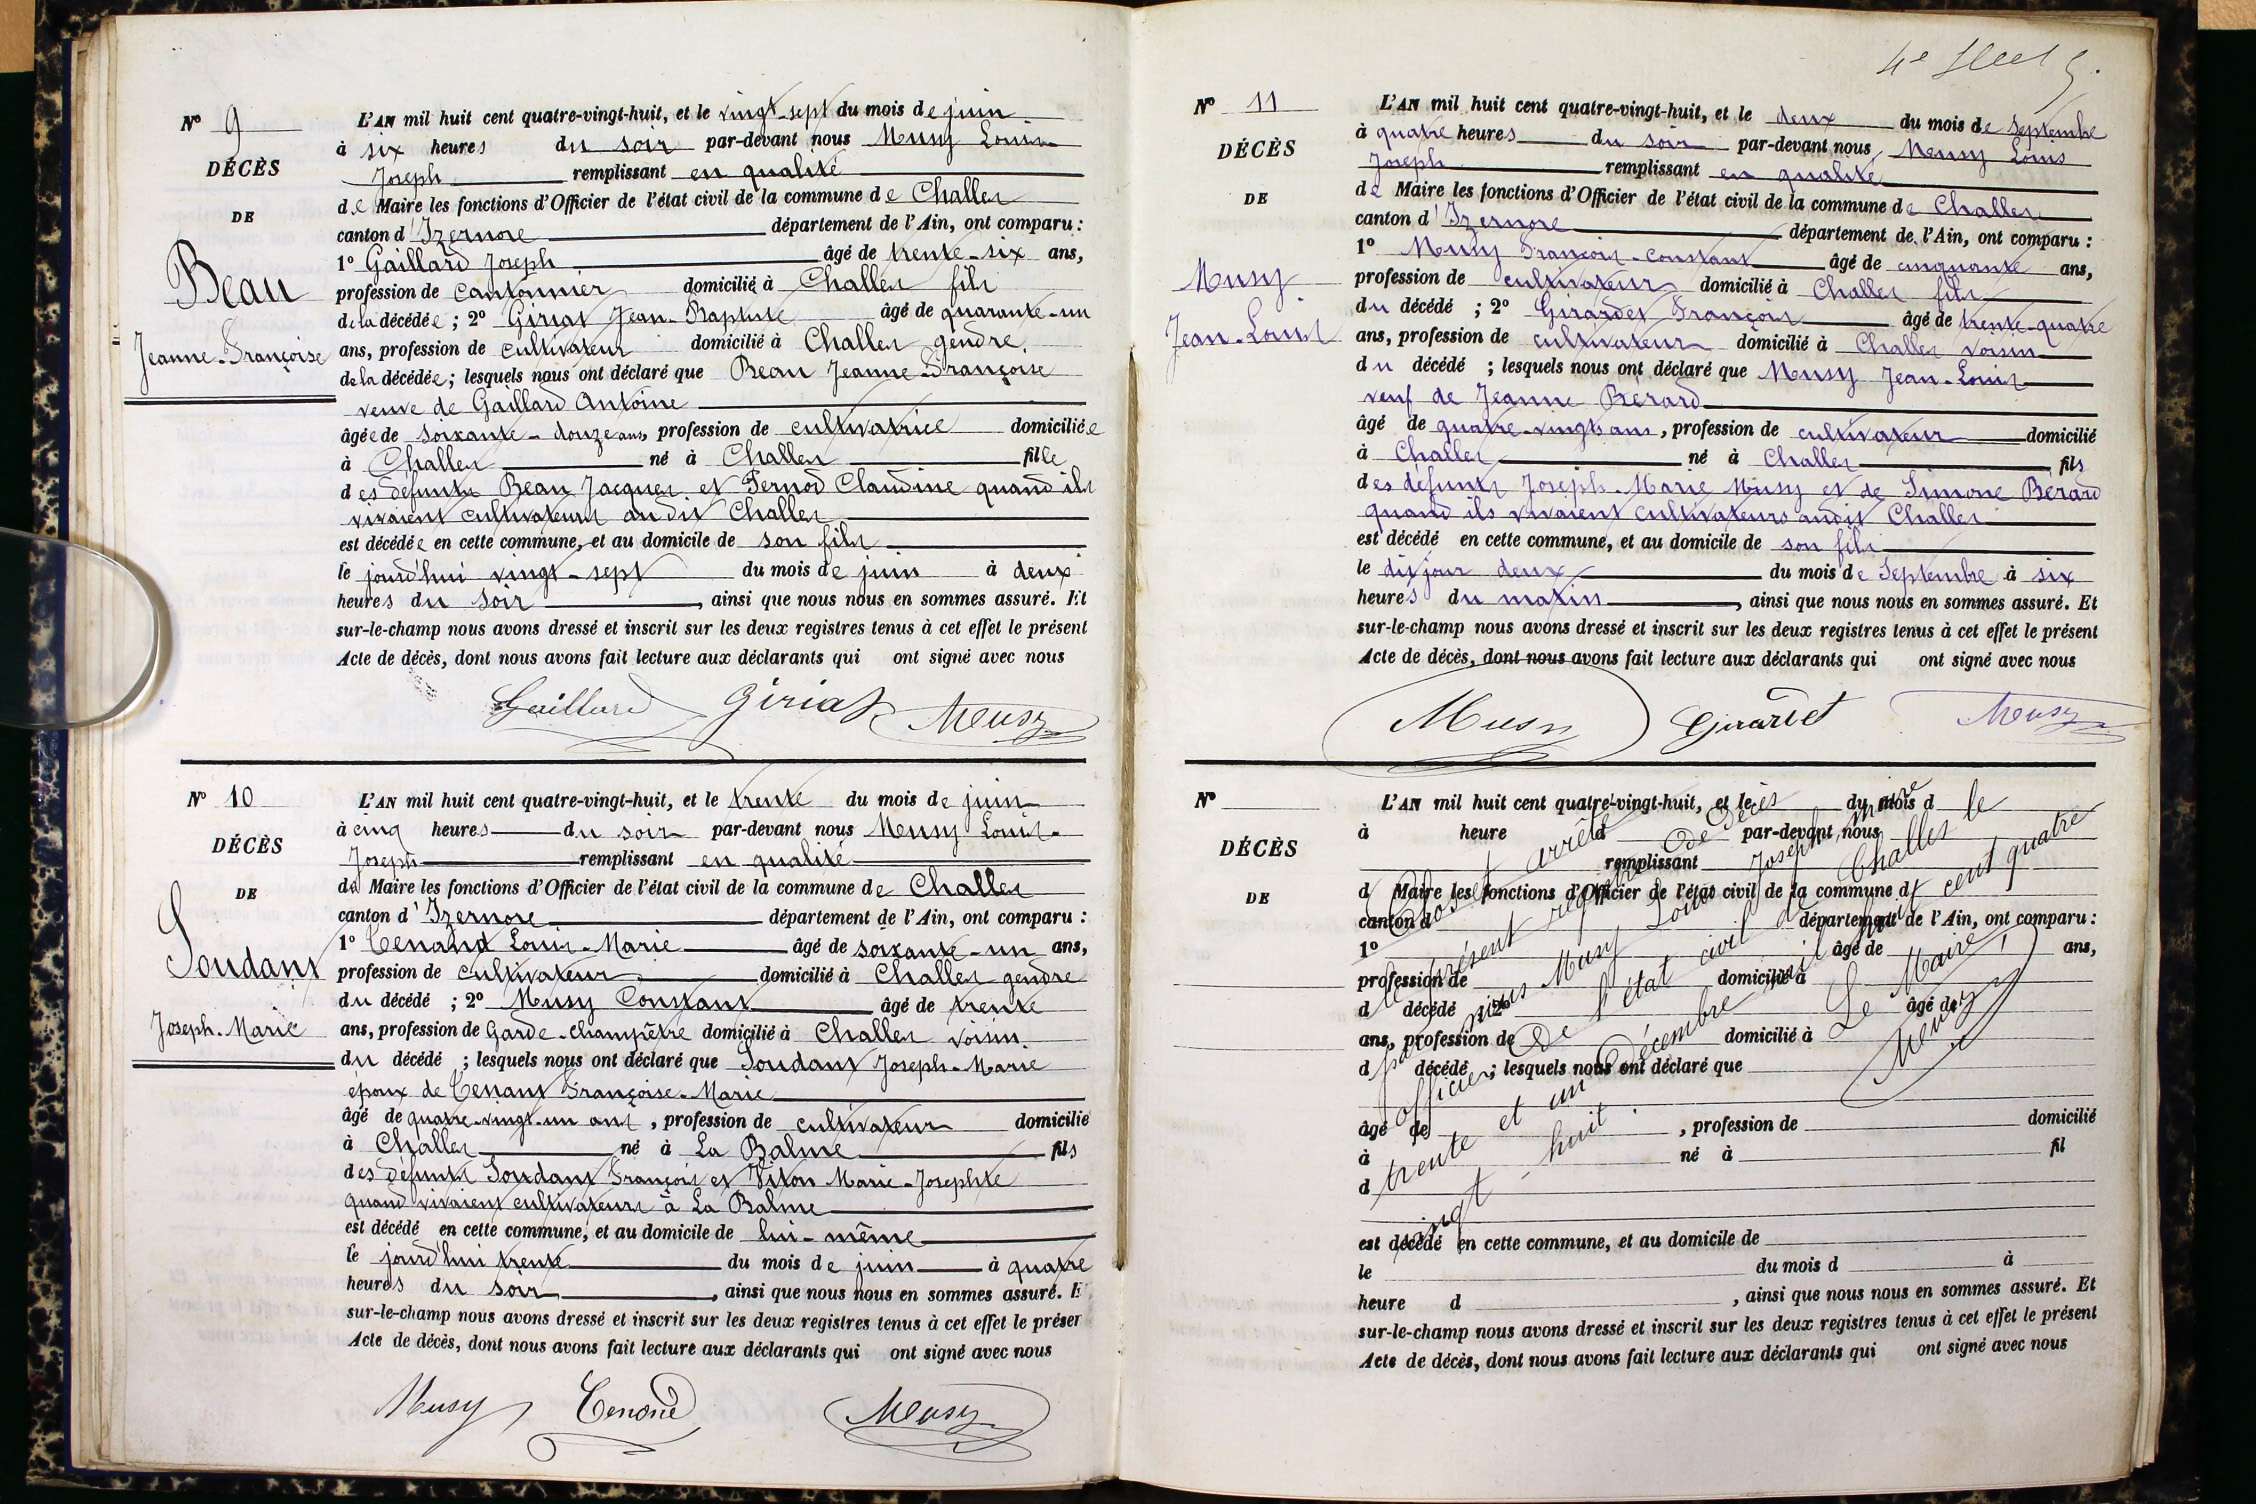 Nº 9
DÉCÈS
DE
Beau
Jeanne-Françoise
L'AN mil huit cent quatre-vingt-huit, et le vingt-sept du mois de juin
à six heures du soir par-devant nous Musy Louis
Joseph remplissant en qualité
de Maire les fonctions d'Officier de l'état civil de la commune de Challes
canton d'Izernore département de l'Ain, ont comparu :
1º Gaillard Joseph âgé de trente-six ans,
profession de cantonnier domicilié à Challes fils
de la décédée ; 2º Giriat Jean-Baptiste âgé de quarante-un
ans, profession de cultivateur domicilié à Challes gendre
de la décédée ; lesquels nous ont déclaré que Beau Jeanne-Françoise
veuve de Gaillard Antoine
âgée de soixante-douze ans, profession de cultivatrice domiciliée
à Challes né à Challes fille
des défunts Beau Jacques et Pernod Claudine quand ils
vivaient cultivateurs audit Challes
est décédée en cette commune, et au domicile de son fils
le jourd'hui vingt-sept du mois de juin à deux
heures du soir, ainsi que nous nous en sommes assuré. Et
sur-le-champ nous avons dressé et inscrit sur les deux registres tenus à cet effet le présent
Acte de décès, dont nous avons fait lecture aux déclarants qui ont signé avec nous
Gaillard Giriat Musy
Nº 10
DÉCÈS
DE
Soudant
Joseph-Marie
L'AN mil huit cent quatre-vingt-huit, et le trente du mois de juin
à cinq heures du soir par-devant nous Musy Louis-
Joseph remplissant en qualité
de Maire les fonctions d'Officier de l'état civil de la commune de Challes
canton d'Izernore département de l'Ain, ont comparu :
1º Tenand Louis-Marie âgé de soixante-un ans,
profession de cultivateur domicilié à Challes gendre
du décédé ; 2º Musy Constant âgé de trente
ans, profession de Garde-champêtre domicilié à Challes voisin
du décédé ; lesquels nous ont déclaré que Soudant Joseph-Marie
époux de Tenant Françoise-Marie
âgé de quatre-vingt-un ans, profession de cultivateur domicilié
à Challes né à La Balme fils
des défunts Soudant François et Viton Marie-Josephte
quand vivaient cultivateurs à La Balme
est décédé en cette commune, et au domicile de lui-même
le jourd'hui trente du mois de juin à quatre
heures du soir, ainsi que nous nous en sommes assuré. E
sur-le-champ nous avons dressé et inscrit sur les deux registres tenus à cet effet le préser
Acte de décès, dont nous avons fait lecture aux déclarants qui ont signé avec nous
Musy Tenand Musy
4e
Nº 11
DÉCÈS
DE
Musy
Jean-Louis
L'AN mil huit cent quatre-vingt-huit, et le deux du mois de Septembre
à quatre heures du soir par-devant nous Musy Louis
Joseph remplissant en qualité
de Maire les fonctions d'Officier de l'état civil de la commune de Challes
canton d'Izernore département de l'Ain, ont comparu :
1º Musy François-Constant âgé de cinquante ans,
profession de cultivateur domicilié à Challes fils
du décédé ; 2º Girardet François âgé de trente-quatre
ans, profession de cultivateur domicilié à Challes voisin
du décédé ; lesquels nous ont déclaré que Musy Jean-Louis
veuf de Jeanne Bérard
âgé de quatre-vingts ans, profession de cultivateur domicilié
à Challes né à Challes fils
des défunts Joseph-Marie Musy et de Simone Berard
quand ils vivaient cultivateurs audit Challes
est décédé en cette commune, et au domicile de son fils
le dit jour deux du mois de Septembre à six
heures du matin, ainsi que nous nous en sommes assuré. Et
sur-le-champ nous avons dressé et inscrit sur les deux registres tenus à cet effet le présent
Acte de décès, dont nous avons fait lecture aux déclarants qui ont signé avec nous
Musy Girardet Musy
Nº
DÉCÈS
DE
L'AN mil huit cent quatre-vingt-huit, et le du mois d
à heure d par-devant nous
remplissant
d Maire les fonctions d'Officier de l'état civil de la commune d
canton d département de l'Ain, ont comparu :
1º âgé de ans,
profession de domicilié à
d décédé ; 2º âgé de
ans, profession de domicilié à
d décédé ; lesquels nous ont déclaré que
âgé de , profession de domicilié
à né à fil
d
est décédé en cette commune, et au domicile de
le du mois d à
heure d , ainsi que nous nous en sommes assuré. Et
sur-le-champ nous avons dressé et inscrit sur les deux registres tenus à cet effet le présent
Acte de décès, dont nous avons fait lecture aux déclarants qui ont signé avec nous
Clos et arrêté
le présent registre de décès
par nous Musy Louis Joseph, maire
officier de l'état civil de Challes le
trente et un décembre mil huit cent quatre
vingt-huit.
Le Maire,
Musy